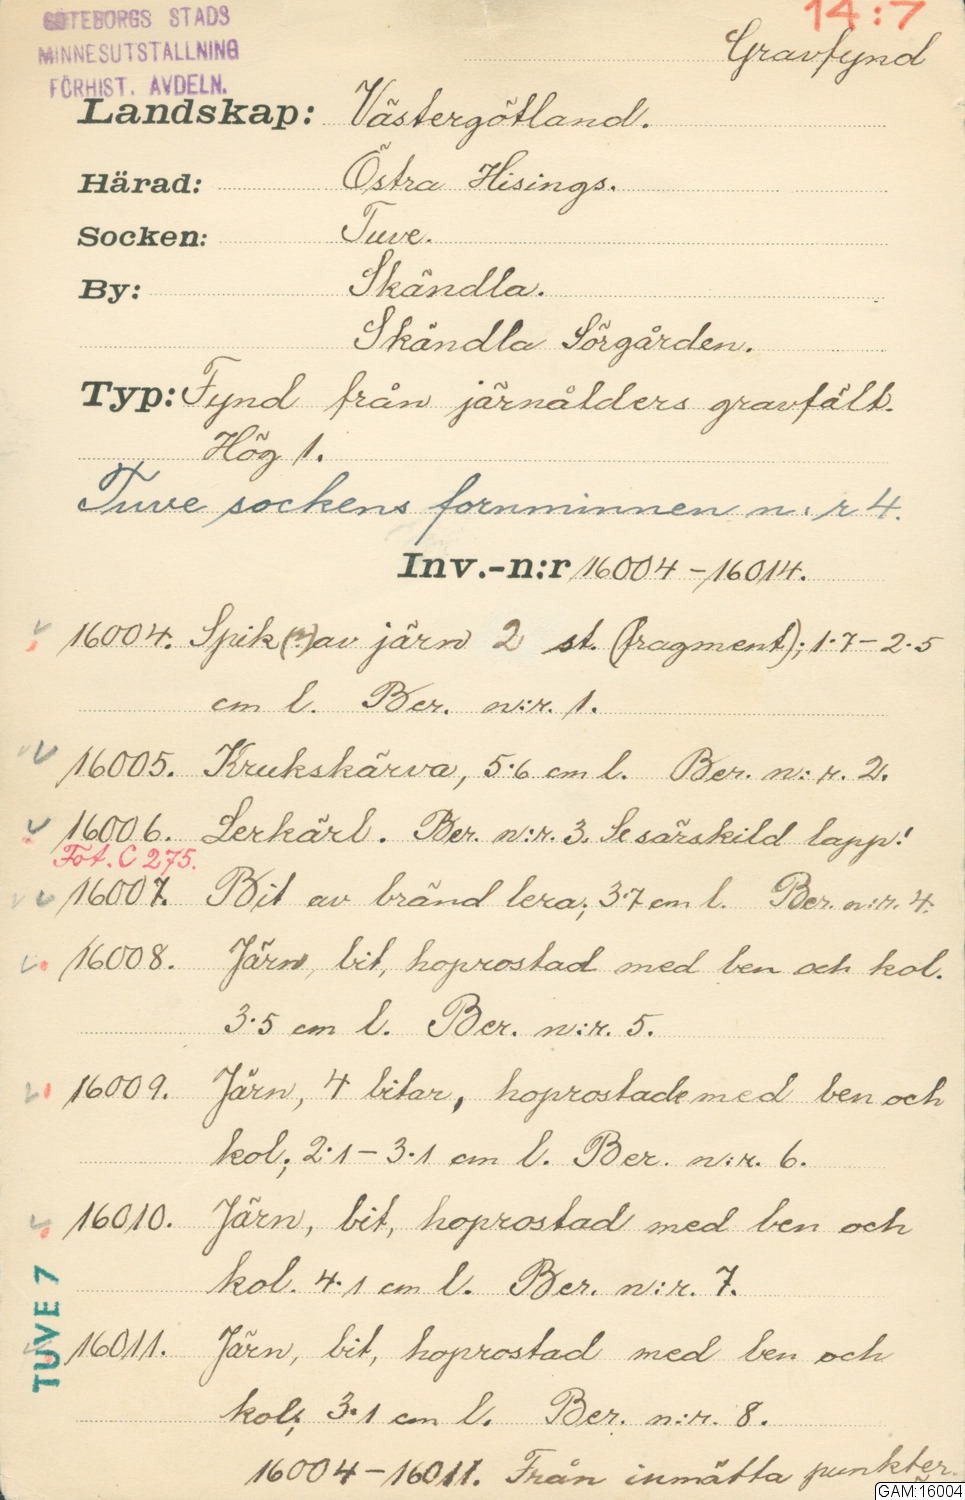 GÖTEBORGS STADS
MINNESUTSTÄLLNING
FÖRHIST. AVDELN.
14:7
Gravfynd
Landskap: Västergötland.
Härad: Östra Hisings.
Socken: Tuve.
By: Skändla.
Skändla Sörgården.
Typ: Fynd från järnålders gravfält.
Hög 1.
Tuve sockens fornminnen n:r 4.
Inv.-n:r 16004-16014.
16004. Spik(?) av järn 2 st. (fragment); 1.7-2.5
cm l. Ber. n:r. 1.
16005. Krukskärva, 5.6 cm l. Ber. n:r. 2.
16006. Lerkärl. Ber. n:r. 3. Se särskild lapp!
Fot. C 275.
16007. Bit av bränd lera; 3.7 cm l. Ber. n:r. 4.
16008. Järn, bit, hoprostad med ben och kol.
3.5 cm l. Ber. n:r. 5.
16009. Järn, 4 bitar, hoprostade med ben och
kol; 2.1-3.1 cm l. Ber. n:r. 6.
16010. Järn, bit, hoprostad med ben och
kol. 4.1 cm l. Ber. n:r. 7.
16011. Järn, bit, hoprostad med ben och
kol; 3.1 cm l. Ber. n:r. 8.
16004-16011. Från inmätta punkter.
TUVE 7
GAM:16004